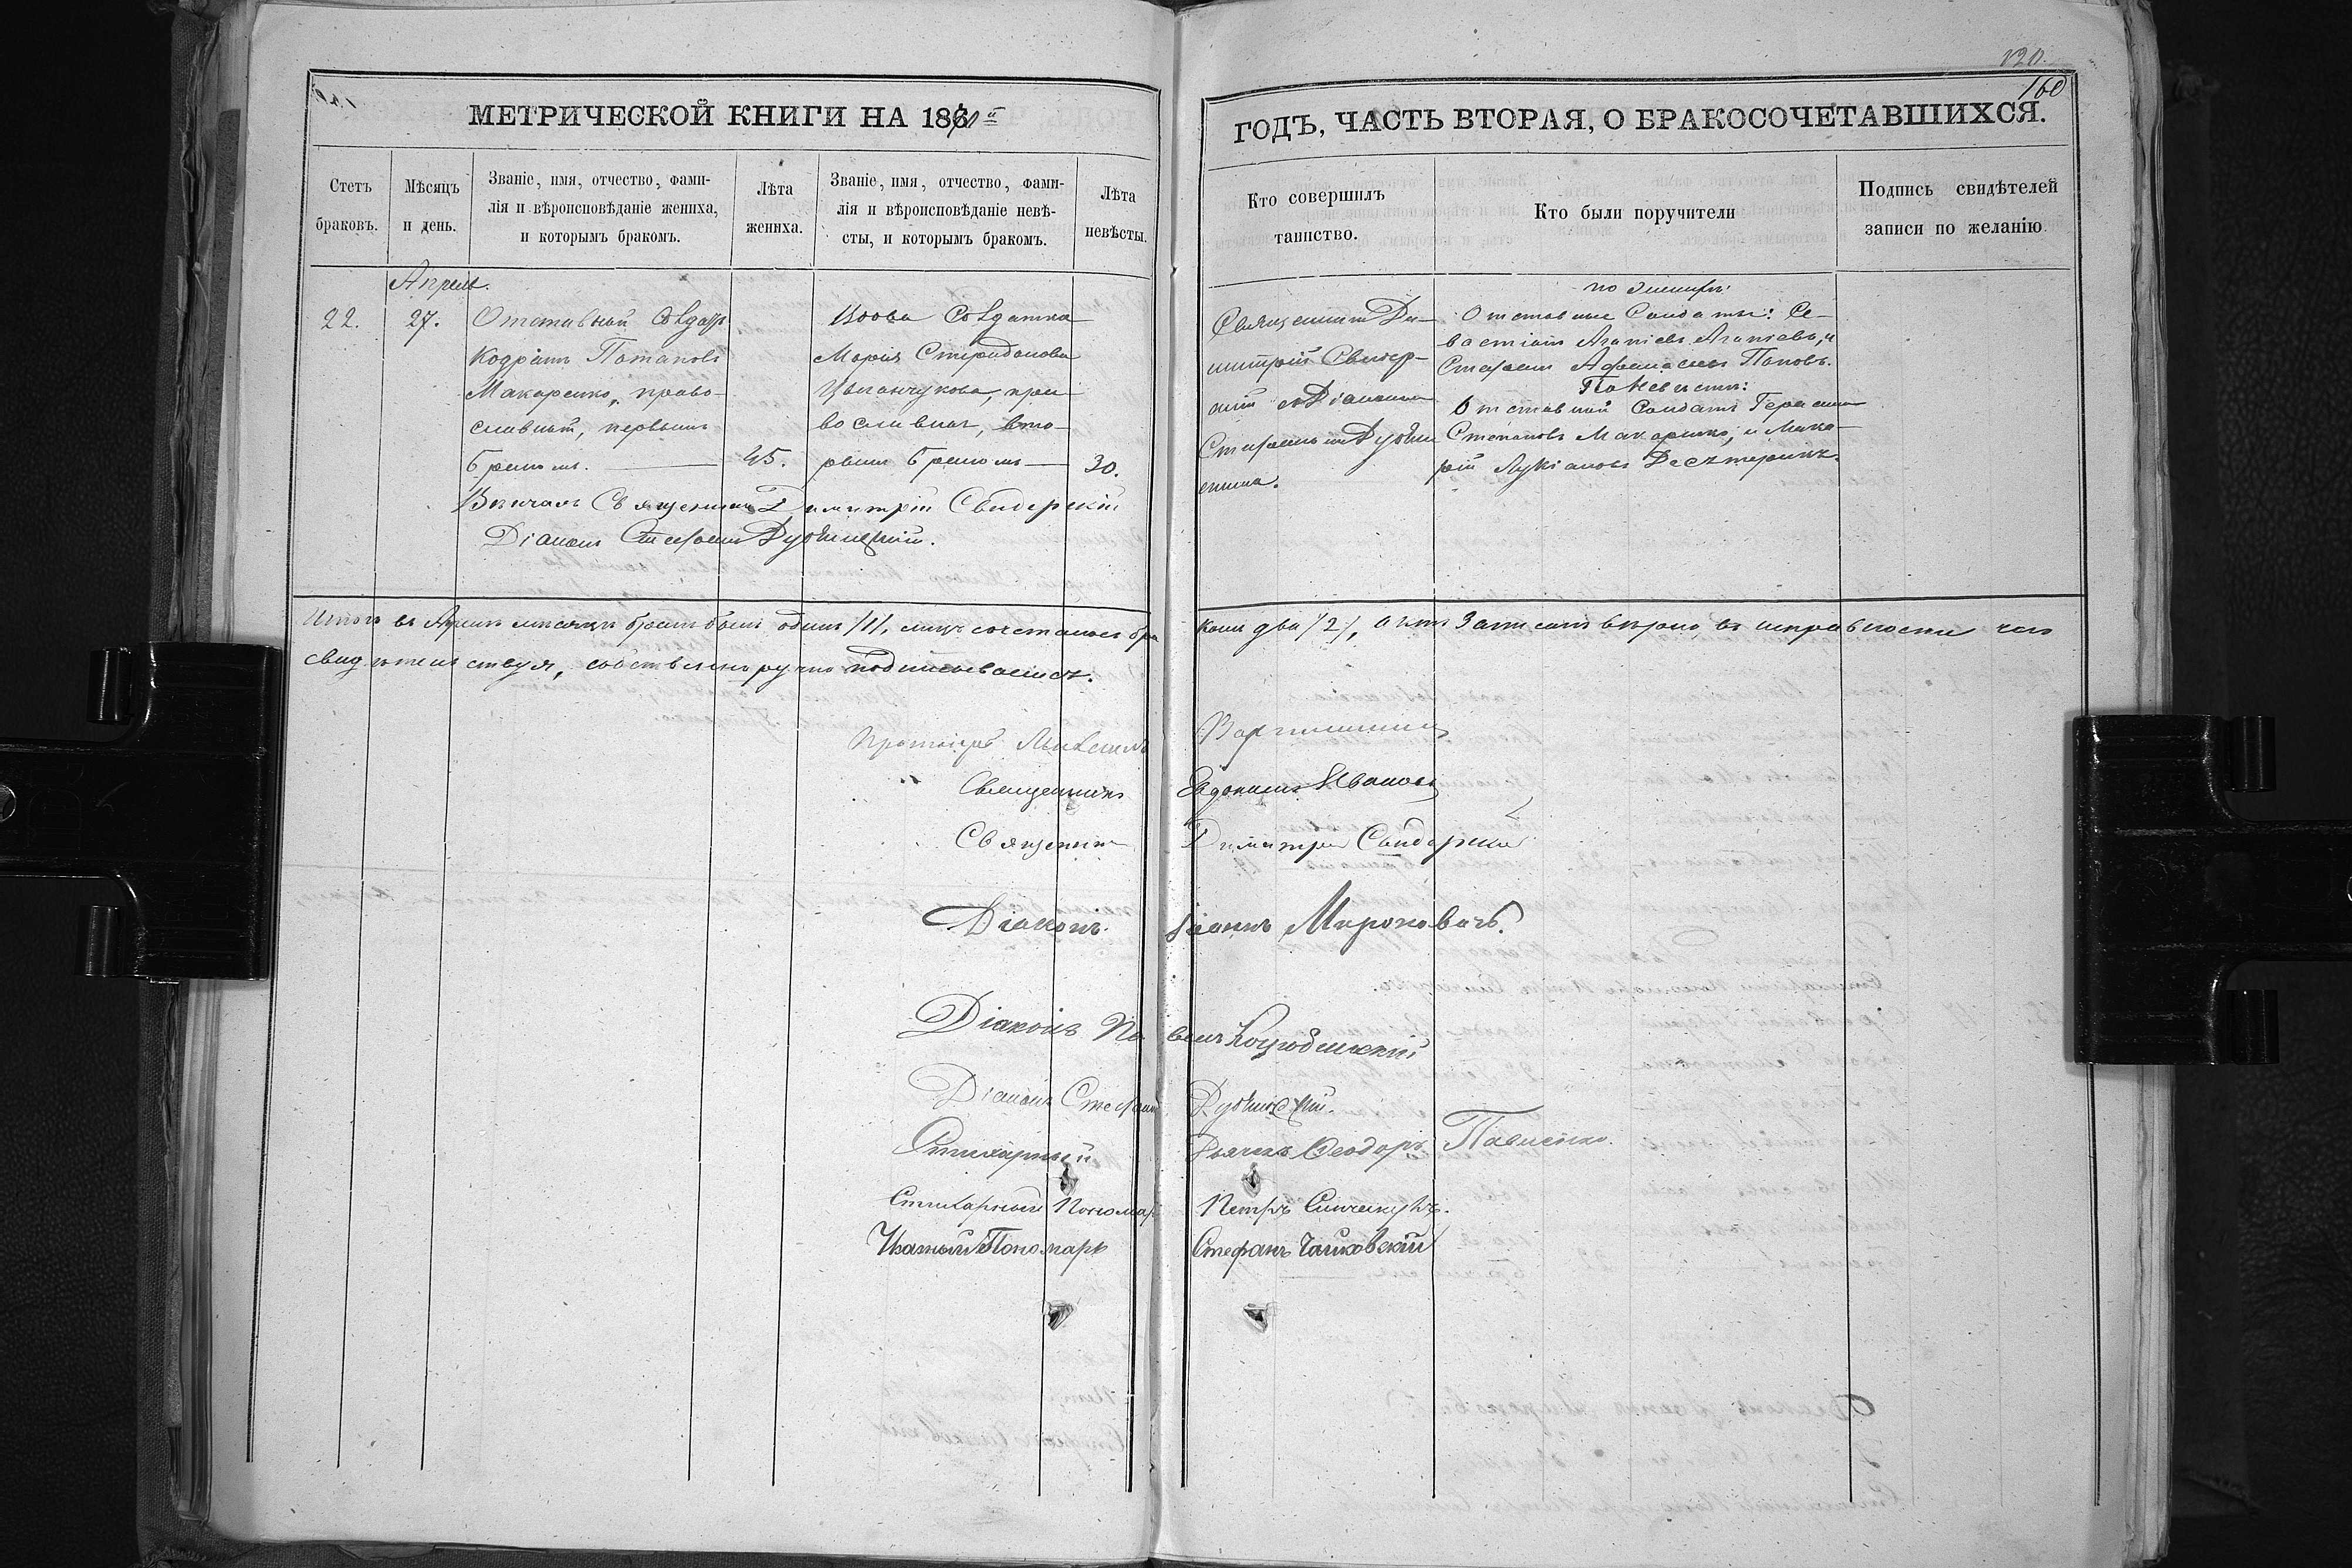 120.
160
МЕТРИЧЕСКОЙ КНИГИ НА 18
ГОДЪ, ЧАСТЬ ВТОРАЯ, О БРАКОСОЧЕТАВШИХСЯ.
Счетъ браковъ.
Мѣсяцъ и день.
Званіе, имя, отчество, фами-
лія и вѣроисповѣданіе жениха,
и которымъ бракомъ.
Лѣта
жениха.
Званіе, имя, отчество, фами-
лія и вѣроисповѣданіе невѣ-
сты, и которымъ бракомъ.
Лѣта
невѣсты.
Кто совершилъ
таинство.
Кто были поручители
Подпись свидѣтелей
записи по желанію
Апрель.
22.
27.
Отставный Солдатъ
Кодратъ Потаповъ
Макаренко, право-
славный, первымъ
бракомъ.
45.
Вдова Солдатка
Марія Спиридонова
Цыганчукова, пра-
вославная, вто-
рымъ бракомъ
30.
Священникъ Ди-
митрій Свидер-
скій съ Діакономъ
Стефаномъ
по женихѣ:
Отставные Солдаты: Се-
вастіанъ Ананіевъ Ананіевъ, и
Стефанъ Афанасьевъ Поповъ.
По Невѣстѣ:
Отставной Солдатъ Герасимъ
Степановъ Макаренко, и Мака-
рій Лукіановъ Десятерикъ.
Вѣнчалъ Священникъ Димитрій Свидерскій
Діаконъ Стефанъ
Итого въ Апрелѣ мѣсяцѣ бракъ былъ одинъ /1/, лицъ сочеталось бра
комъ два /2/, а что записанъ вѣрно, въ исправности чего
свидѣтельствуя, собственноручно подписываемся.
Протоіерей
Священникъ Евдокимъ Ивановъ
Священникъ Димитрій Свидерскій
Діаконъ Іоаннъ Мироновичъ.
Діаконъ Павелъ
Діаконъ Стефанъ
Стихарный Дьячекъ Ѳеодоръ Павленко.
Стихарный Пономарь Петръ
Штатный Пономарь Стефанъ Чайковскій